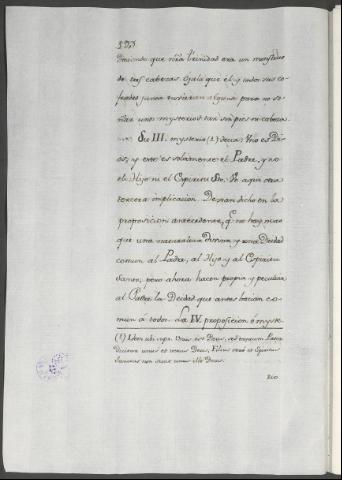 diciendo que n̄ra Trinidad era un monstruo
de tres cabezas. Ojala que el y todos sus co-
frades juntos tuviesen alguna para no so-
ñar unos mysterios tan sin pies ni cabeza
Su III. mysterio (1) decia: Uno es Di-
os; y este es solamente el Padre, y no
el Hijo ni el Espiritu Sto. He aqui otra
tercera implicacion. Dexan dicho en la
proposicion antecedente, q.e no hay mas
que una naturaleza divina y una Deidad
comun al Padre, al Hijo y al Espiritu
Santo; pero ahora hacen propia y peculiar
al Padre la Deidad que antes hacian co-
mun á todos. La IV. proposicion ó myste-
(1) Idem ubi supr. Unus est Deus, sed tantum Pater
dicitur unus et verus Deus; Filius verò et Spiritus
Sanctus non sunt unus ille Deus.
rio